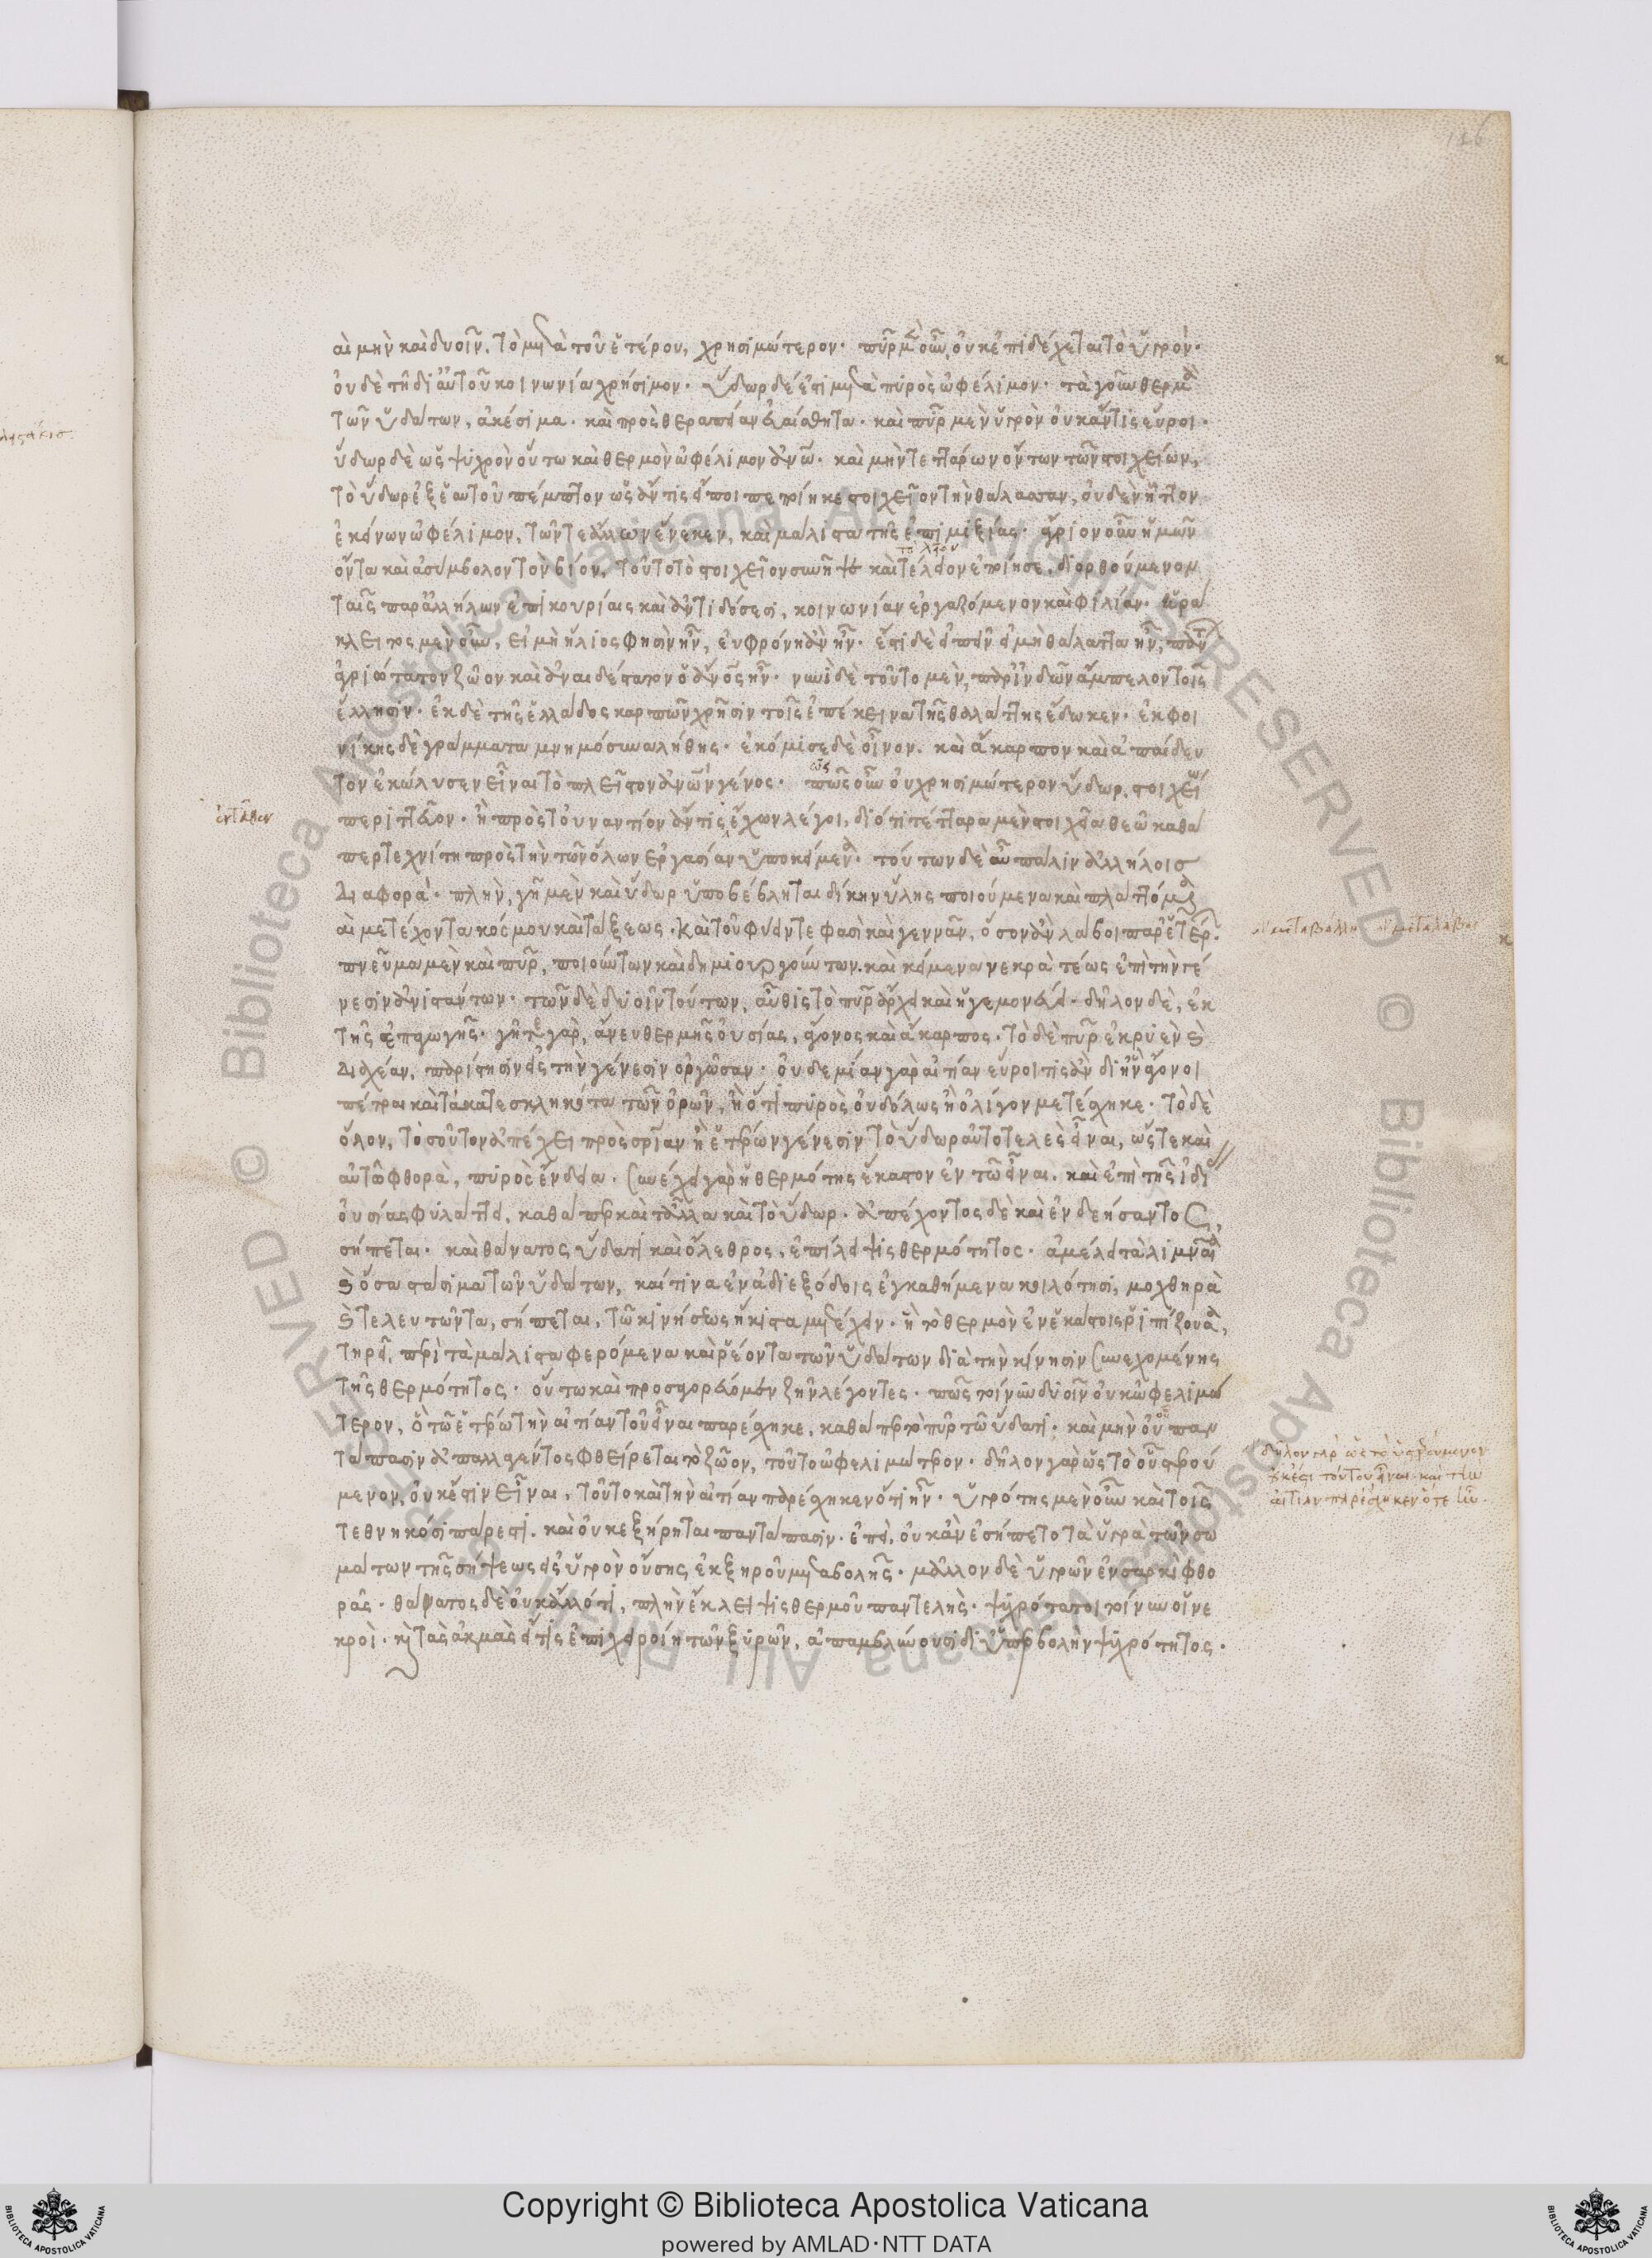 αὶ μὴν καὶ δυοῖν, τὸ μετὰ τοῦ ἑτέρου, χρησιμώτερον· πῦρ μὲν οὖν οὐκ ἐπιδέχεται τὸ ὑγρόν·
οὐδὲ τῇ δι' αὐτοῦ κοινωνία χρήσιμον· ὕδωρ δέ ἐστι μετὰ πυρὸς ὠφέλιμον· τὰ γοῦν θερμὰ
τῶν ὑδάτων, ἀκέσιμα· καὶ πρὸς θεραπείαν εὐαίσθητα· καὶ πῦρ μὲν ὑγρὸν οὐκ ἄν τις εὕροι·
ὕδωρ δὲ ὡς ψυχρὸν οὕτω καὶ θερμὸν ὠφέλιμον ἀνθρώπῳ· καὶ μὴν τεττάρων ὄντων τῶν στοιχείων,
τὸ ὕδωρ ἐξ ἑαυτοῦ πέμπτον ὡς ἄν τις εἴποι πεποίηκε στοιχεῖον τὴν θάλασσαν, οὐδὲν ἧττον
ἐκείνων ὠφέλιμον, τῶν τε ἄλλων ἕνεκεν, καὶ μάλιστα τῆς ἐπιμιξίας· ἄγριον οὖν ἡμῶν
ὄντα καὶ ἀσύμβολον τὸν βίον, τοῦτο τὸ στοιχεῖον συνῆψε καὶ τέλειον ἐποίησε, διορθούμενον
ταῖς παρ' ἀλλήλων ἐπικουρίαις καὶ ἀντιδόσεσι, κοινωνίαν ἐργαζόμενον καὶ φιλίαν· ἡρά
κλειτος μὲν οὖν, εἰ μὴ ἥλιος φησὶν ἦν, εὐφρόνη ἂν ἦν· ἔστι δὲ εἰπεῖν εἰ μὴ θάλαττα ἦν, πάντων
ἀγριώτατον ζῶον καὶ ἀναιδέστατον ὁ ἄνθρωπος ἦν· νυνὶ δὲ τοῦτο μὲν, παρ' ἰνδῶν ἄμπελον τοῖς
ἕλλησιν· ἐκ δὲ τῆς ἑλλάδος καρπῶν χρῆσιν τοῖς ἐπέκεινα τῆς θαλάττης ἔδωκεν· ἐκ φοι
νίκης δὲ γράμματα μνημόσυνα λήθης· ἐκόμισε δὲ οἶνον. καὶ ἄκαρπον καὶ ἀπαίδευ
τον ἐκώλυσεν εἶναι τὸ πλεῖστον ἀνθρώπων γένος· πῶς οὖν οὐ χρησιμώτερον ὕδωρ, στοιχείου
ἐντεῦθεν
περιττεῦον· ἢ πρὸς τοὐναντίον ἄν τις ἔχων λέγοι, διότι τέτταρα μὲν στοιχεῖα θεῶ καθά
περ τεχνίτη πρὸς τὴν τῶν ὅλων ἐργασίαν ὑποκείμενα· τούτων δὲ αὖ πάλιν ἀλλήλοις
διαφορά· πλὴν, γῆ μὲν καὶ ὕδωρ ὑποβέβληται δίκην ὕλης ποιούμενα καὶ πλαττόμενα
αὶ μετέχοντα κόσμου καὶ τάξεως. καὶ τοῦ φύειν τε φασὶ καὶ γεννᾶν, ὅσον ἂν λάβοι παρ' ἑτέρων·
πνεῦμα μὲν καὶ πῦρ, ποιούντων καὶ δημιουργούντων. καὶ κείμενα νεκρὰ τέως ἐπὶ τὴν γέ
νεσιν ἀνιστάντων· τῶν δὲ δυοῖν τούτων, αὖθις τὸ πῦρ ἄρχει καὶ ἡγεμονεύει. δῆλον δὲ, ἐκ
τῆς ἐπαγωγῆς· γῆ τε γὰρ, ἄνευ θερμῆς οὐσίας, ἄγονος καὶ ἄκαρπος. τὸ δὲ πῦρ
διαχέαν, παρίστησιν εἰς τὴν γένεσιν ὀργῶσαν· οὐδεμίαν γὰρ αἰτίαν εὕροι τις ἂν δι' ἣν ἄγονοι
πέτραι καὶ τὰ κατεσκληκότα τῶν ὀρῶν, ἢ ὅτι πυρὸς οὐδόλως ἢ ὀλίγον μετέσχηκε· τὸ δὲ
ὅλον, τοσοῦτον ἀπέχει πρὸς σωτηρίαν ἢ ἑτέρων γένεσιν τὸ ὕδωρ αὐτοτελὲς εἶναι, ὥστε καὶ
αὐτῶ φθορὰ, πυρὸς ἔνδεια. συνέχει γὰρ ἡ θερμότης ἕκαστον ἐν τῶ εἶναι. καὶ ἐπὶ τῆς ἰδίας
οὐσίας φυλάττει, καθάπερ καὶ τἄλλα καὶ τὸ ὕδωρ. ἀπέχοντος δὲ καὶ ἐνδεήσαντος,
σήπεται· καὶ θάνατος ὕδατι καὶ ὄλεθρος, ἐπίλειψις θερμότητος· ἀμέλει τὰ λιμναῖα
καὶ ὅσα στάσιμα τῶν ὑδάτων, καί τινα ἐν ἀδιεξόδοις ἐγκαθήμενα κοιλότησι, μοχθηρὰ
καὶ τελευτῶντα, σήπεται, τῶ κινήσεως ἥκιστα μετέχειν· ἣ τὸ θερμὸν ἐν ἑκάστοις ῥιπίζουσα,
τηρεῖ, περὶ τὰ μάλιστα φερόμενα καὶ ῥέοντα τῶν ὑδάτων διὰ τὴν κίνησιν συνεχομένης
τῆς θερμότητος· οὕτω καὶ προσαγορεύομεν ζῆν λέγοντες· πῶς τοίνυν δυοῖν οὐκ ὠφελιμώ
τερον, ὃ τῶ ἑτέρω τὴν αἰτίαν τοῦ εἶναι παρέσχηκε, καθάπερ τὸ πῦρ τῶ ὕδατι· καὶ μὴν οὗ παν
τάπασιν ἀπαλλαγέντος φθείρεται τὸ ζῶον, τοῦτο ὠφελιμώτερον· δῆλον γὰρ ὡς τὸ οὗ στερού
μενον, οὐκ ἔστιν εἶναι, τοῦτο καὶ τὴν αἰτίαν παρέσχηκεν ὅτι ἦν· ὑγρότης μὲν οὖν καὶ τοῖς
τεθνηκόσι πάρεστι. καὶ οὐκ ἐξήρηται παντάπασιν· ἐπεὶ, οὐκ ἂν ἐσήπετο τὰ ὑγρὰ τῶν σω
μάτων τῆς σήψεως εἰς ὑγρὸν οὔσης ἐκ ξηροῦ μεταβολῆς· μᾶλλον δὲ ὑγρῶν ἐν σαρκὶ φθο
ρᾶς· θάνατος δὲ οὐκ ἄλλό τι, πλὴν ἔκλειψις θερμοῦ παντελής· ψυχρότατοι τοίνυν οἱ νε
κροί· καὶ τὰς ἀκμὰς εἴ τις ἐπιχειροίη τῶν ξυρῶν, ἀπαμβλύνουσι δι' ὑπερβολὴν ψυχρότητος·
δῆλον γὰρ ὡς τὸ οὗ στερούμενον
οὐκ ἔστι τούτου εἶναι καὶ τὴν
αἰτίαν παρέσχηκεν ὅτε ἦν.
Copyright © Biblioteca Apostolica Vaticana
powered by AMLAD·NTT DATA